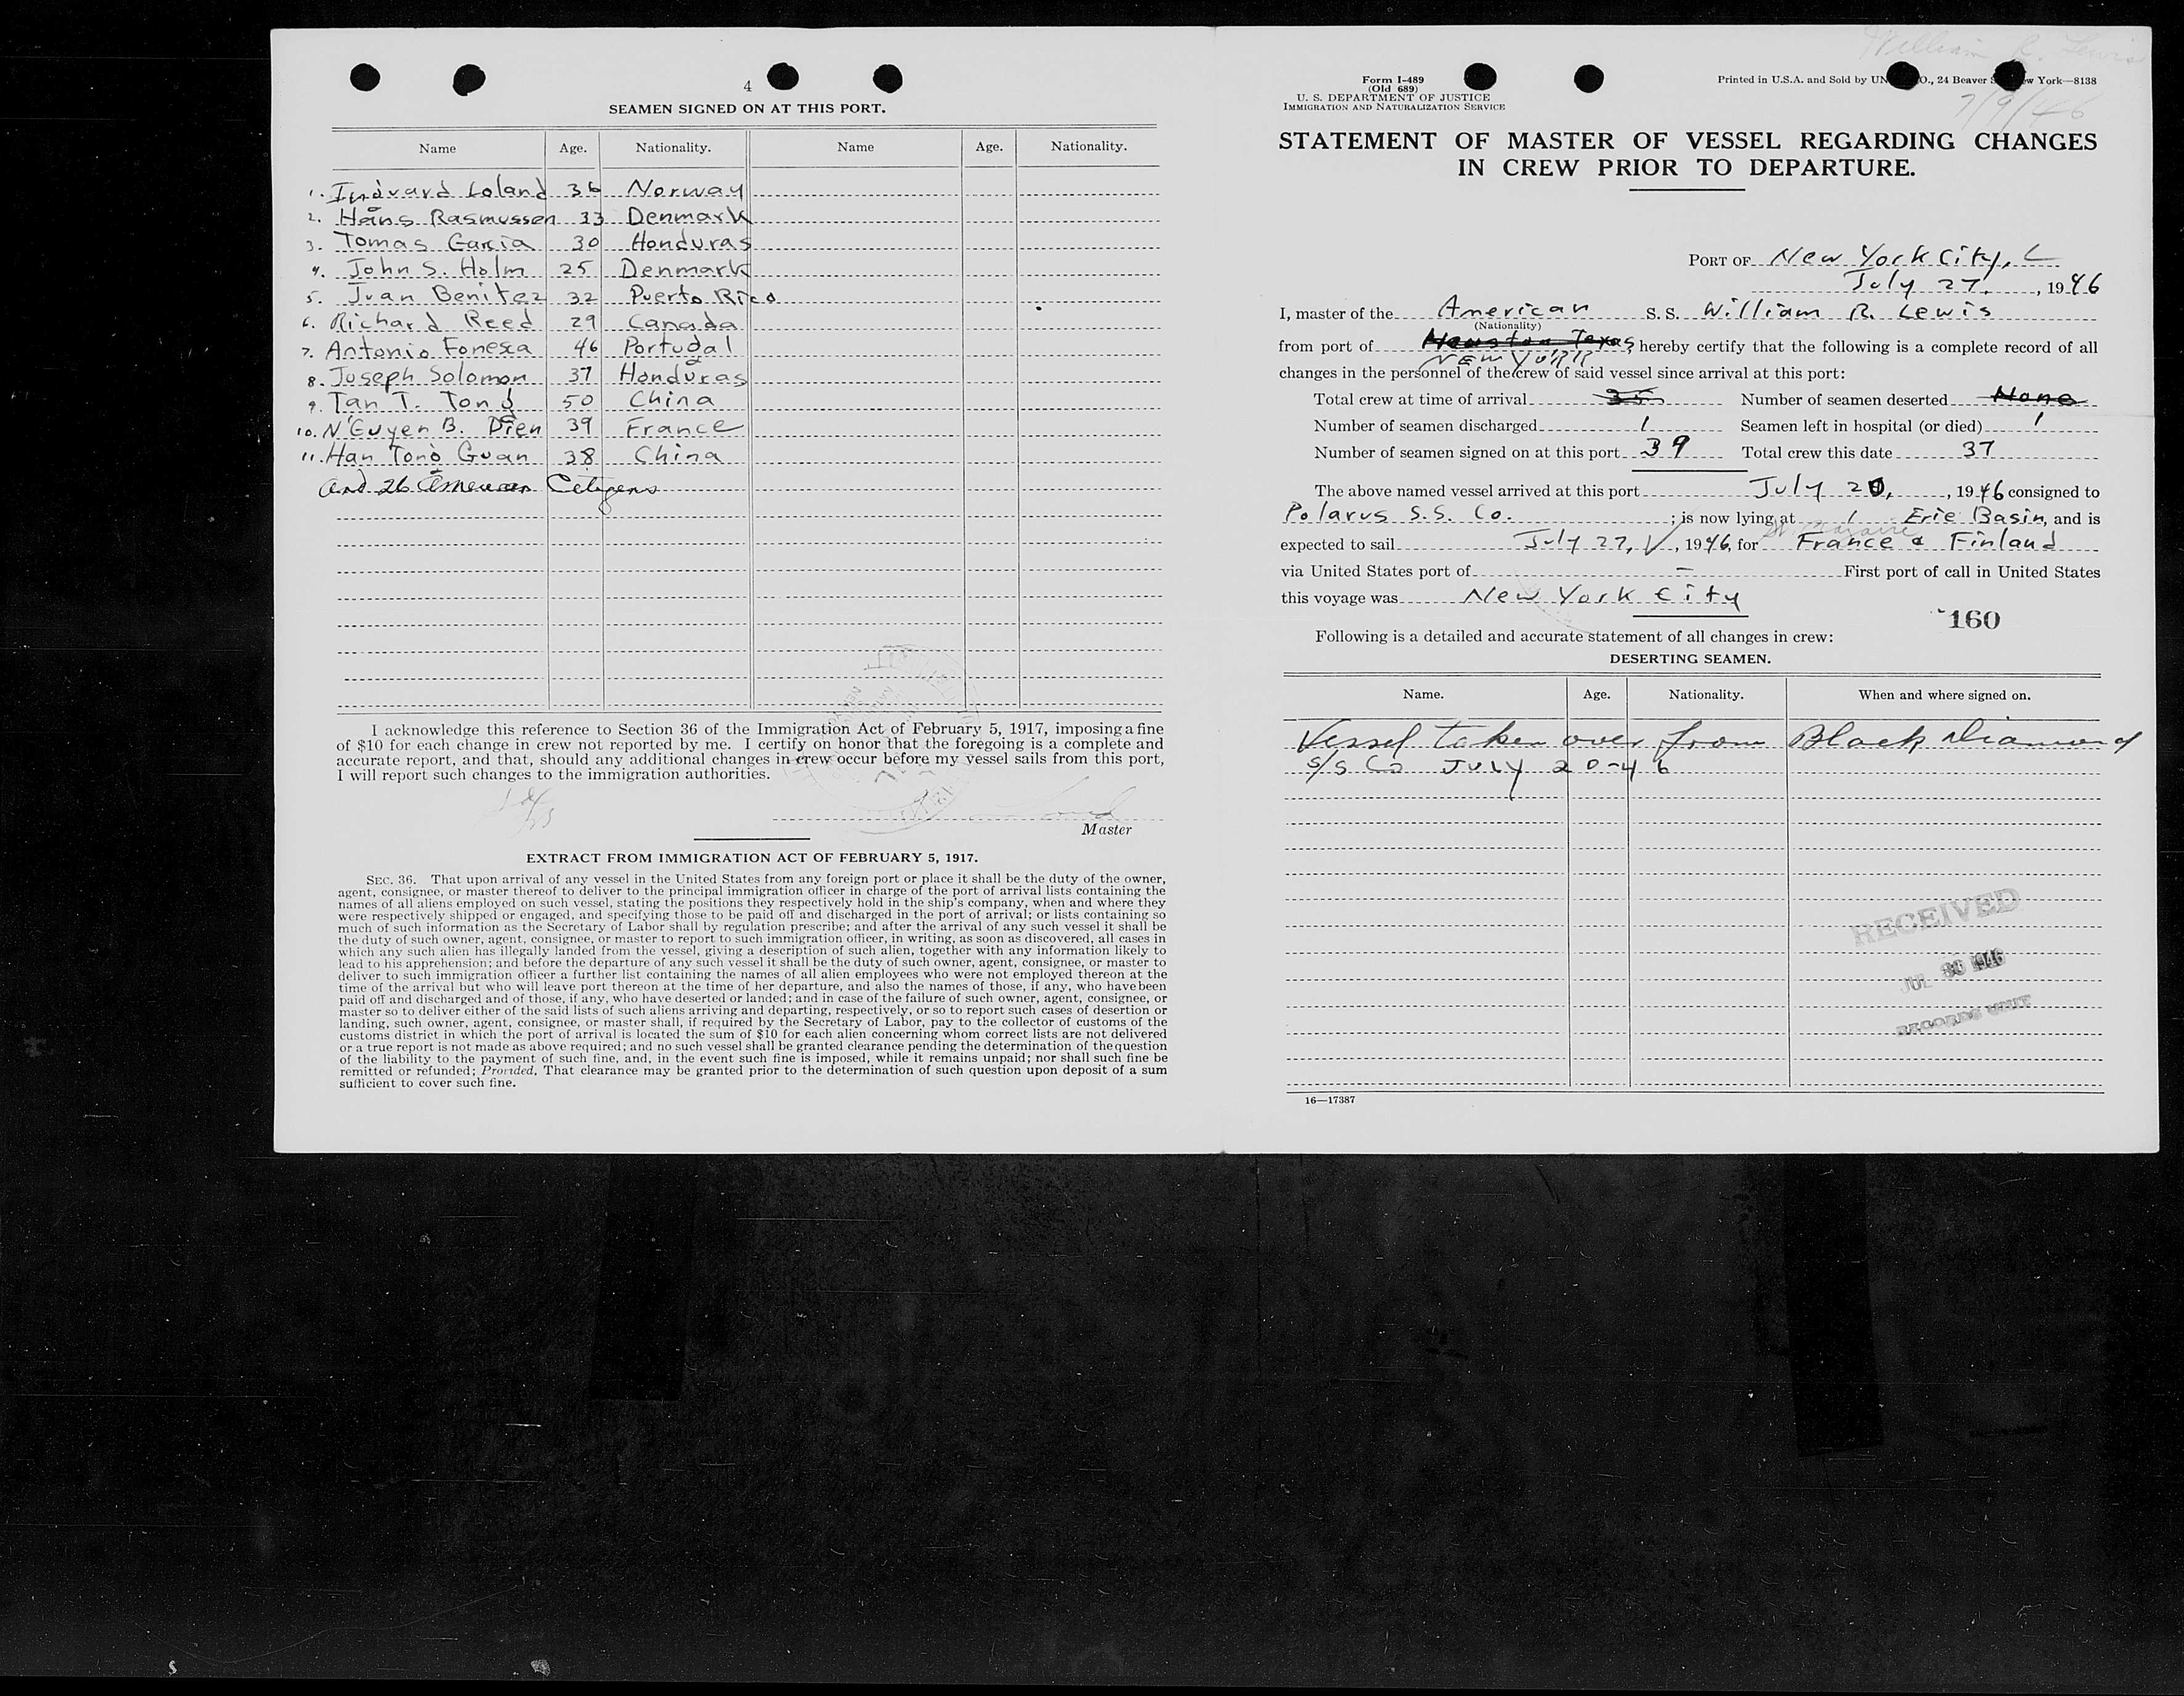 4
SEAMEN SIGNED ON AT THIS PORT.
Name Age. Nationality. Name Age. Nationality.
1. Loland 36 Norway
2. Hans Rasmussen 33 Denmark
3. Tomas Garcia 30 Honduras
4. John S. Holm 25 Denmark
5. Juan Benitez 32 Puerto Rico
6. Richard Reed 29 Canada
7. Antonio Foneseca 46 Portugal
8. Joseph Solomon 37 Honduras
9. Tan T. Tong 50 China
10. N'Guyen B. Dien 39 France
11. Han Tong Guan 38 China
And 26 American Citizens
I acknowledge this reference to Section 36 of the Immigration Act of February 5, 1917, imposing a fine
of $10 for each change in crew not reported by me. I certify on honor that the foregoing is a complete and
accurate report, and that, should any additional changes in crew occur before my vessel sails from this port,
I will report such changes to the immigration authorities.
Master
EXTRACT FROM IMMIGRATION ACT OF FEBRUARY 5, 1917.
SEC. 36. That upon arrival of any vessel in the United States from any foreign port or place it shall be the duty of the owner,
agent, consignee, or master thereof to deliver to the principal immigration officer in charge of the port of arrival lists containing the
names of all aliens employed on such vessel, stating the positions they respectively hold in the ship's company, when and where they
were respectively shipped or engaged, and specifying those to be paid off and discharged in the port of arrival; or lists containing so
much of such information as the Secretary of Labor shall by regulation prescribe; and after the arrival of any such vessel it shall be
the duty of such owner, agent, consignee, or master to report to such immigration officer, in writing, as soon as discovered, all cases in
which any such alien has illegally landed from the vessel, giving a description of such alien, together with any information likely to
lead to his apprehension; and before the departure of any such vessel it shall be the duty of such owner, agent, consignee, or master to
deliver to such immigration officer a further list containing the names of all alien employees who were not employed thereon at the
time of the arrival but who will leave port thereon at the time of her departure, and also the names of those, if any, who have been
paid off and discharged and of those, if any, who have deserted or landed; and in case of the failure of such owner, agent, consignee, or
master so to deliver either of the said lists of such aliens arriving and departing, respectively, or so to report such cases of desertion or
landing, such owner, agent, consignee, or master shall, if required by the Secretary of Labor, pay to the collector of customs of the
customs district in which the port of arrival is located the sum of $10 for each alien concerning whom correct lists are not delivered
or a true report is not made as above required; and no such vessel shall be granted clearance pending the determination of the question
of the liability to the payment of such fine, and, in the event such fine is imposed, while it remains unpaid; nor shall such fine be
remitted or refunded; Provided, That clearance may be granted prior to the determination of such question upon deposit of a sum
sufficient to cover such fine.
William R. Lewis
7/9/46
Form I-489
(Old 689)
U. S. DEPARTMENT OF JUSTICE
IMMIGRATION AND NATURALIZATION SERVICE
Printed in U.S.A. and Sold by O., 24 Beaver York—8138
STATEMENT OF MASTER OF VESSEL REGARDING CHANGES
IN CREW PRIOR TO DEPARTURE.
PORT OF New York City,
July 27, , 1946
I, master of the American S. S. William R. Lewis
(Nationality)
from port of Houston Texas, hereby certify that the following is a complete record of all
NEW YORK
changes in the personnel of the crew of said vessel since arrival at this port:
Total crew at time of arrival 35 Number of seamen deserted None
Number of seamen discharged 1 Seamen left in hospital (or died) 1
Number of seamen signed on at this port 39 Total crew this date 37
The above named vessel arrived at this port July 20, , 1946 consigned to
Polarus S.S. Co. ; is now lying at 1 Erie Basin, and is
expected to sail July 27, , 1946, for France & Finland
via United States port of — First port of call in United States
this voyage was New York City
160
Following is a detailed and accurate statement of all changes in crew:
DESERTING SEAMEN.
Name. Age. Nationality. When and where signed on.
Vessel taken over from Black Diamond
S/S Co JULY 20-46
RECEIVED
JUL 30 1946
RECORDS UNIT
16—17387